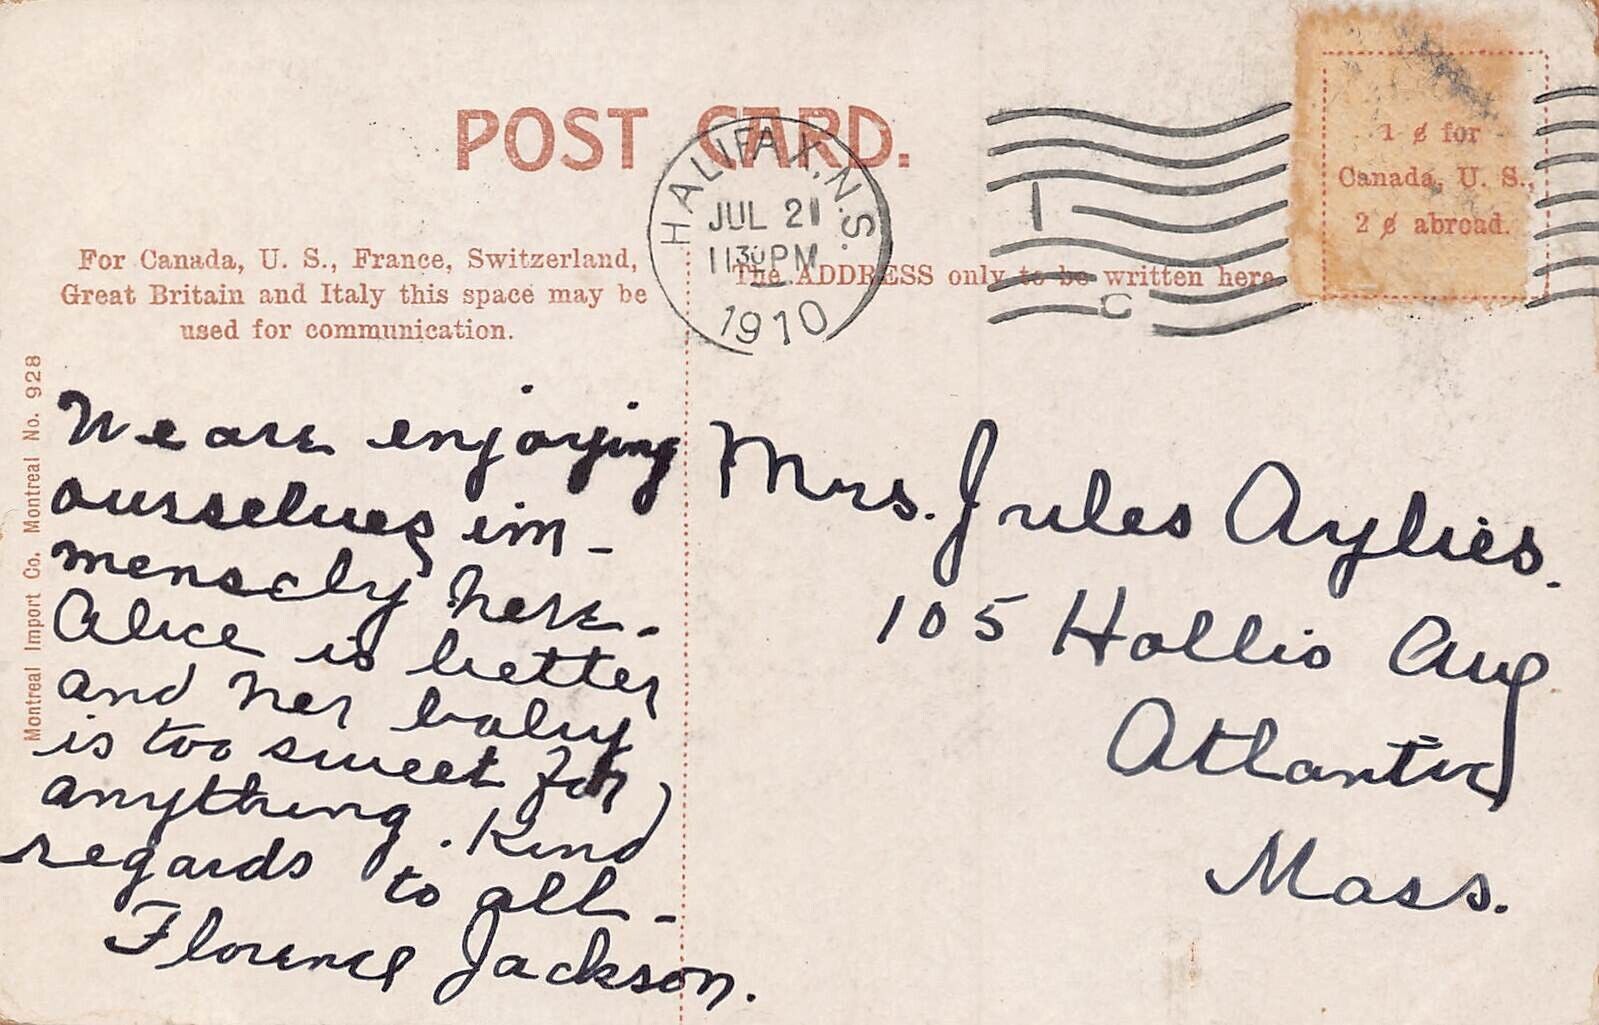 POST CARD.
HALIFAX, N.S.
JUL 21
11 30 PM
1910
1
C
1 ¢ for
Canada, U. S.,
2 ¢ abroad.
For Canada, U. S., France, Switzerland,
Great Britain and Italy this space may be
used for communication.
The ADDRESS only to be written here.
Montreal Import Co. Montreal No. 928
We are enjoying
ourselves im-
mensely here.
Alice is better
and her baby
is too sweet for
anything. Kind
regards to all-
Florence Jackson.
Mrs. Jules Aylies.
105 Hollis Ave
Atlantic
Mass.